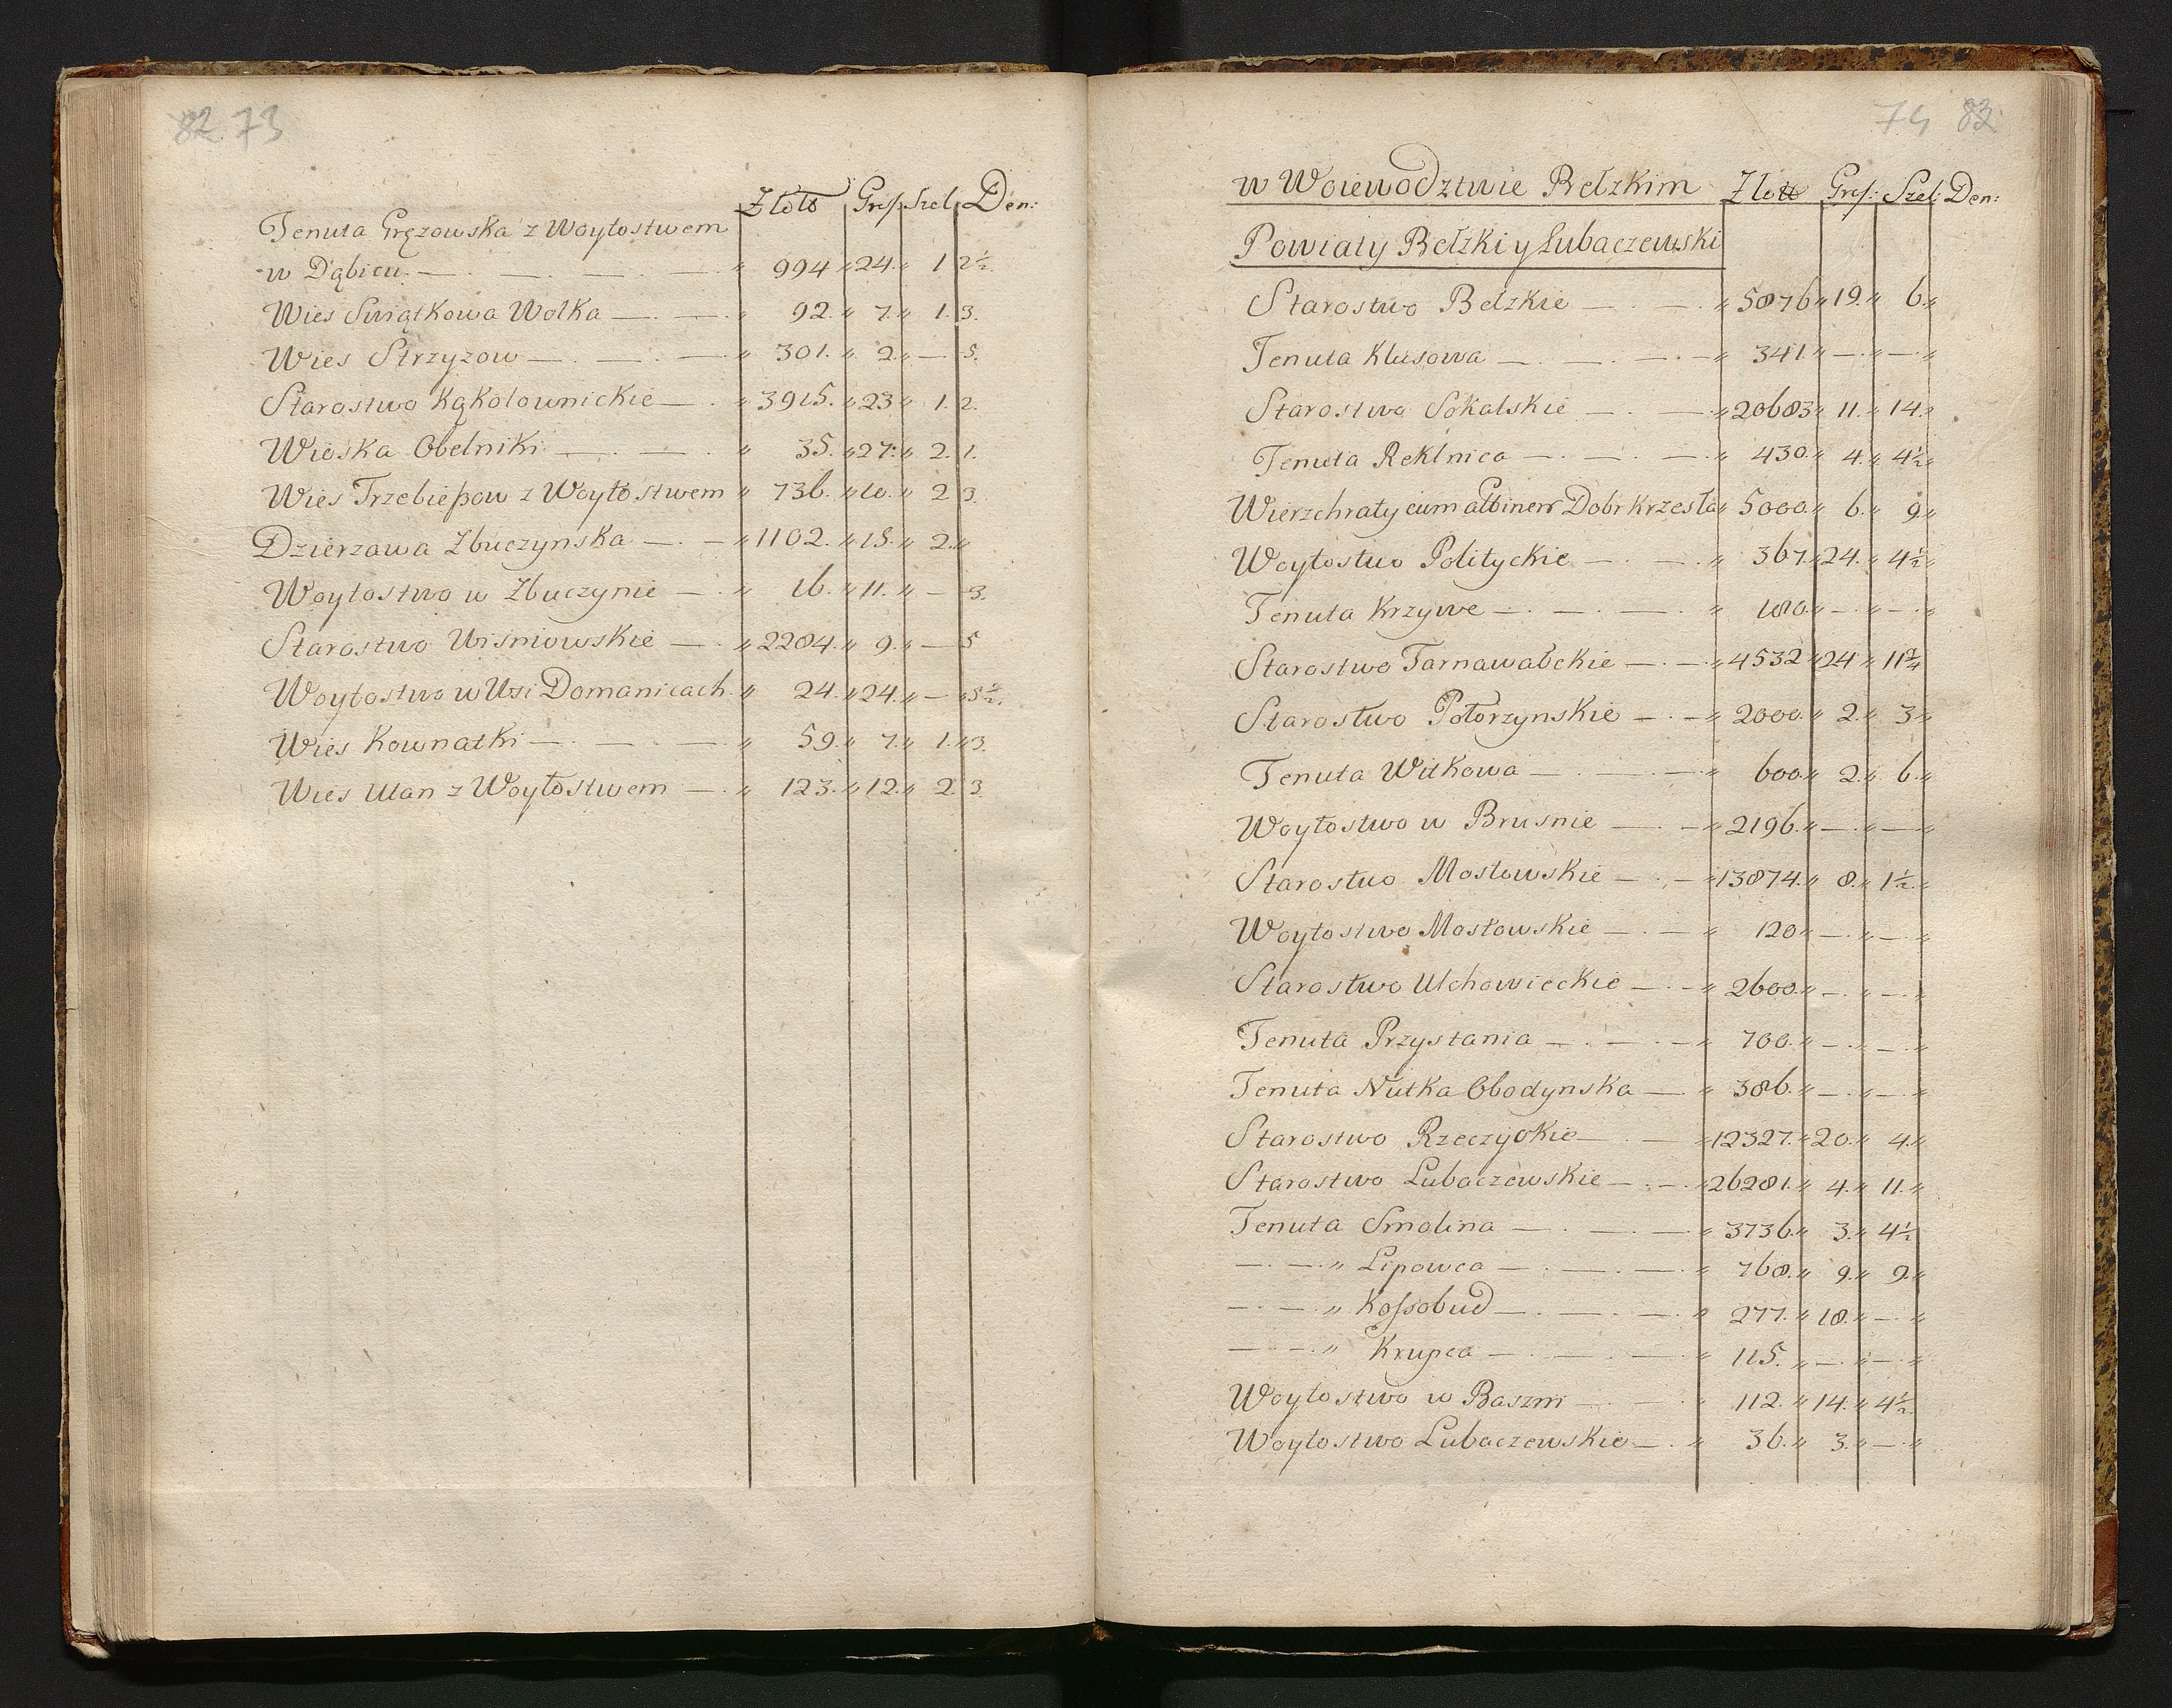 82 73
Złote Gros: Szel: Den:
Tenuta Gręzowska z Woytostwem
w Dąbicu. — . — . — . — „ 994 „ 24. „ 1 2½
Wies Swiątkowa Wolka — . — . „ 92. „ 7. „ 1. 3.
Wies Strzyzow — . — . — . „ 301. „ 2. „ — 5.
Starostwo Kąkolownickie — . „ 3915. „ 23 „ 1. 2.
Wioska Obelniki — . — . „ 35. „ 27. „ 2. 1.
Wies Trzebieszow z Woytostwem „ 736. „ 10. „ 2 3.
Dzierzawa Zbuczynska — . — „ 1102. „ 15. „ 2. „
Woytostwo w Zbuczynie — . „ 16. „ 11. „ — 3.
Starostwo Wisniowskie — . „ 2284. „ 9. „ — 5
Woytostwo w Wsi Domanicach. „ 24. „ 24. „ — „ 5½.
Wies Kownatki — . — . — „ 59. „ 7. „ 1. „ 3.
Wies Ulan z Woytostwem — . „ 123. „ 12. „ 2. 3.
74 83
w Woiewodztwie Bełzkim Złote Gros: Szel: Den:
Powiaty Bełzki y Lubaczewski
Starostwo Bełzkie — . — . „ 5876 „ 19. „ 6. „
Tenuta Klusowa — . — . — „ 341. „ — . „ — . „
Starostwo Sokalskie — . — . „ 20683 „ 11. „ 14. „
Tenuta Reklnica — . — . — . „ 430. „ 4. „ 4½ „
Wierzchraty cum attinen Dobr Krzesła „ 5000. „ 6. „ 9. „
Woytostwo Polityckie — . — . „ 367. „ 24. „ 4½ „
Tenuta Krzywe — . — . — . „ 180. „ — . „ — . „
Starostwo Tarnawałckie — . — . „ 4532 „ 24 „ 11¼
Starostwo Potorzynskie — . — „ 2000. „ 2. „ 3 „
Tenuta Witkowa — . — . — „ 600. „ 2. „ 6. „
Woytostwo w Brusnie — . — „ 2196. „ — . „ — „
Starostwo Mostowskie — . — „ 13874. „ 8. „ 1½ „
Woytostwo Mostowskie — . — „ 120 „ — . „ — . „
Starostwo Uchowieckie — . — „ 2600. „ — . „ — . „
Tenuta Przystania — . — . — „ 700. „ — . „ — . „
Tenuta Nutka Obodynska — „ 386. „ — . „ — . „
Starostwo Rzeczyckie — . — „ 12327. „ 20. „ 4. „
Starostwo Lubaczewskie — . — „ 26281. „ 4. „ 11. „
Tenuta Smolina — . — . — „ 3736. „ 3. „ 4½
— . — . „ Lipowca — . — . — „ 768. „ 9. „ 9. „
— . — . „ Kossobud — . — . — „ 277. „ 18. „ — . „
— . — . „ Krupca — . — . — „ 115. „ — . „ — . „
Woytostwo w Baszni — . — . „ 112. „ 14. „ 4½
Woytostwo Lubaczewskie — . „ 36. „ 3. „ — . „